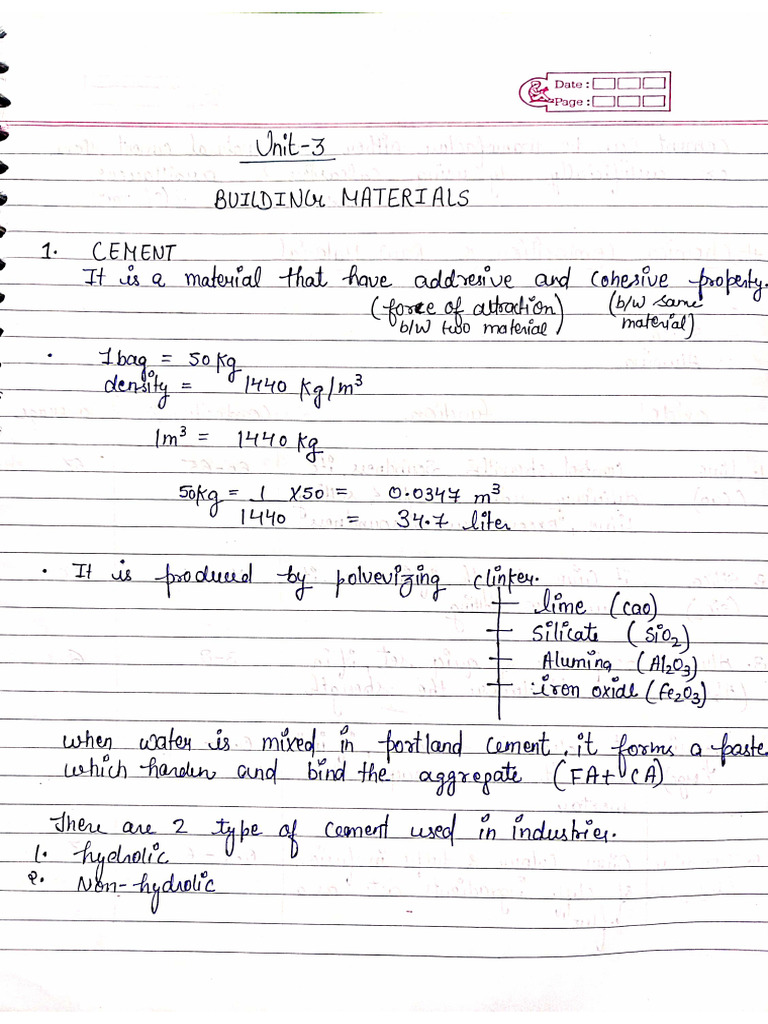 Date :
Page :
Unit-3
BUILDING MATERIALS
1. CEMENT
It is a material that have addresive and cohesive property.
(force of attraction) (b/w same
b/w two material) material)
• 1 bag = 50 kg
density = 1440 kg/m³
1m³ = 1440 kg
50kg = 1 X50 = 0.0347 m³
1440 = 34.7 liter
• It is produced by polverizing clinker.
lime (cao)
silicate (SiO₂)
Alumina (Al₂O₃)
iron oxide (Fe₂O₃)
when water is mixed in portland cement, it forms a paste
which harden and bind the aggregate (FA+CA)
There are 2 type of cement used in industries.
1. hydrolic
2. Non-hydrolic